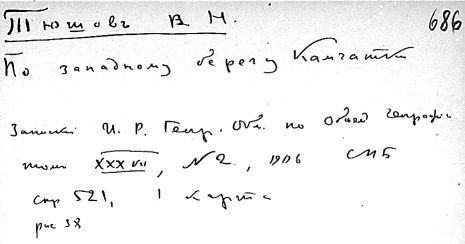 Тюшовъ В Н. 686
По западному берегу Камчатки
Записки И. Р. Геогр. Общ. по общей географии
том XXXVII, N 2, 1906 СПБ
стр 521, 1 карта
рис 38